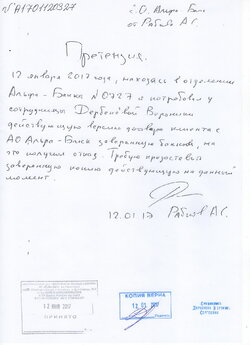 №A1701120927
Д.О. Альфа-Банк
от Рябов А.С.
Претензия.
12 января 2017 года, находясь в отделении
Альфа-Банка №0727 я потребовал у
сотрудницы Вероники
действующую версию договора клиента с
АО Альфа-Банка заверенную банком, на
это получил отказ. Требую предоставить
заверенную копию действующую на данный
момент.
12.01.17 Рябов А.С.
12 ЯНВ 2017
ПРИНЯТО
КОПИЯ ВЕРНА
12 01 2017